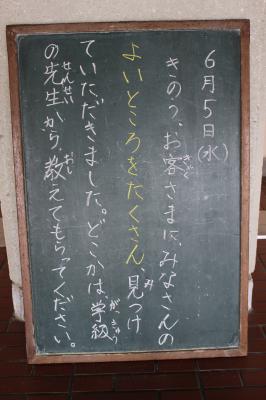 6月5日(水)
きのう、お客さまに、みなさんの
よいところをたくさん、見つけ
ていただきました。どこかは、学級
の先生から、教えてもらってください。